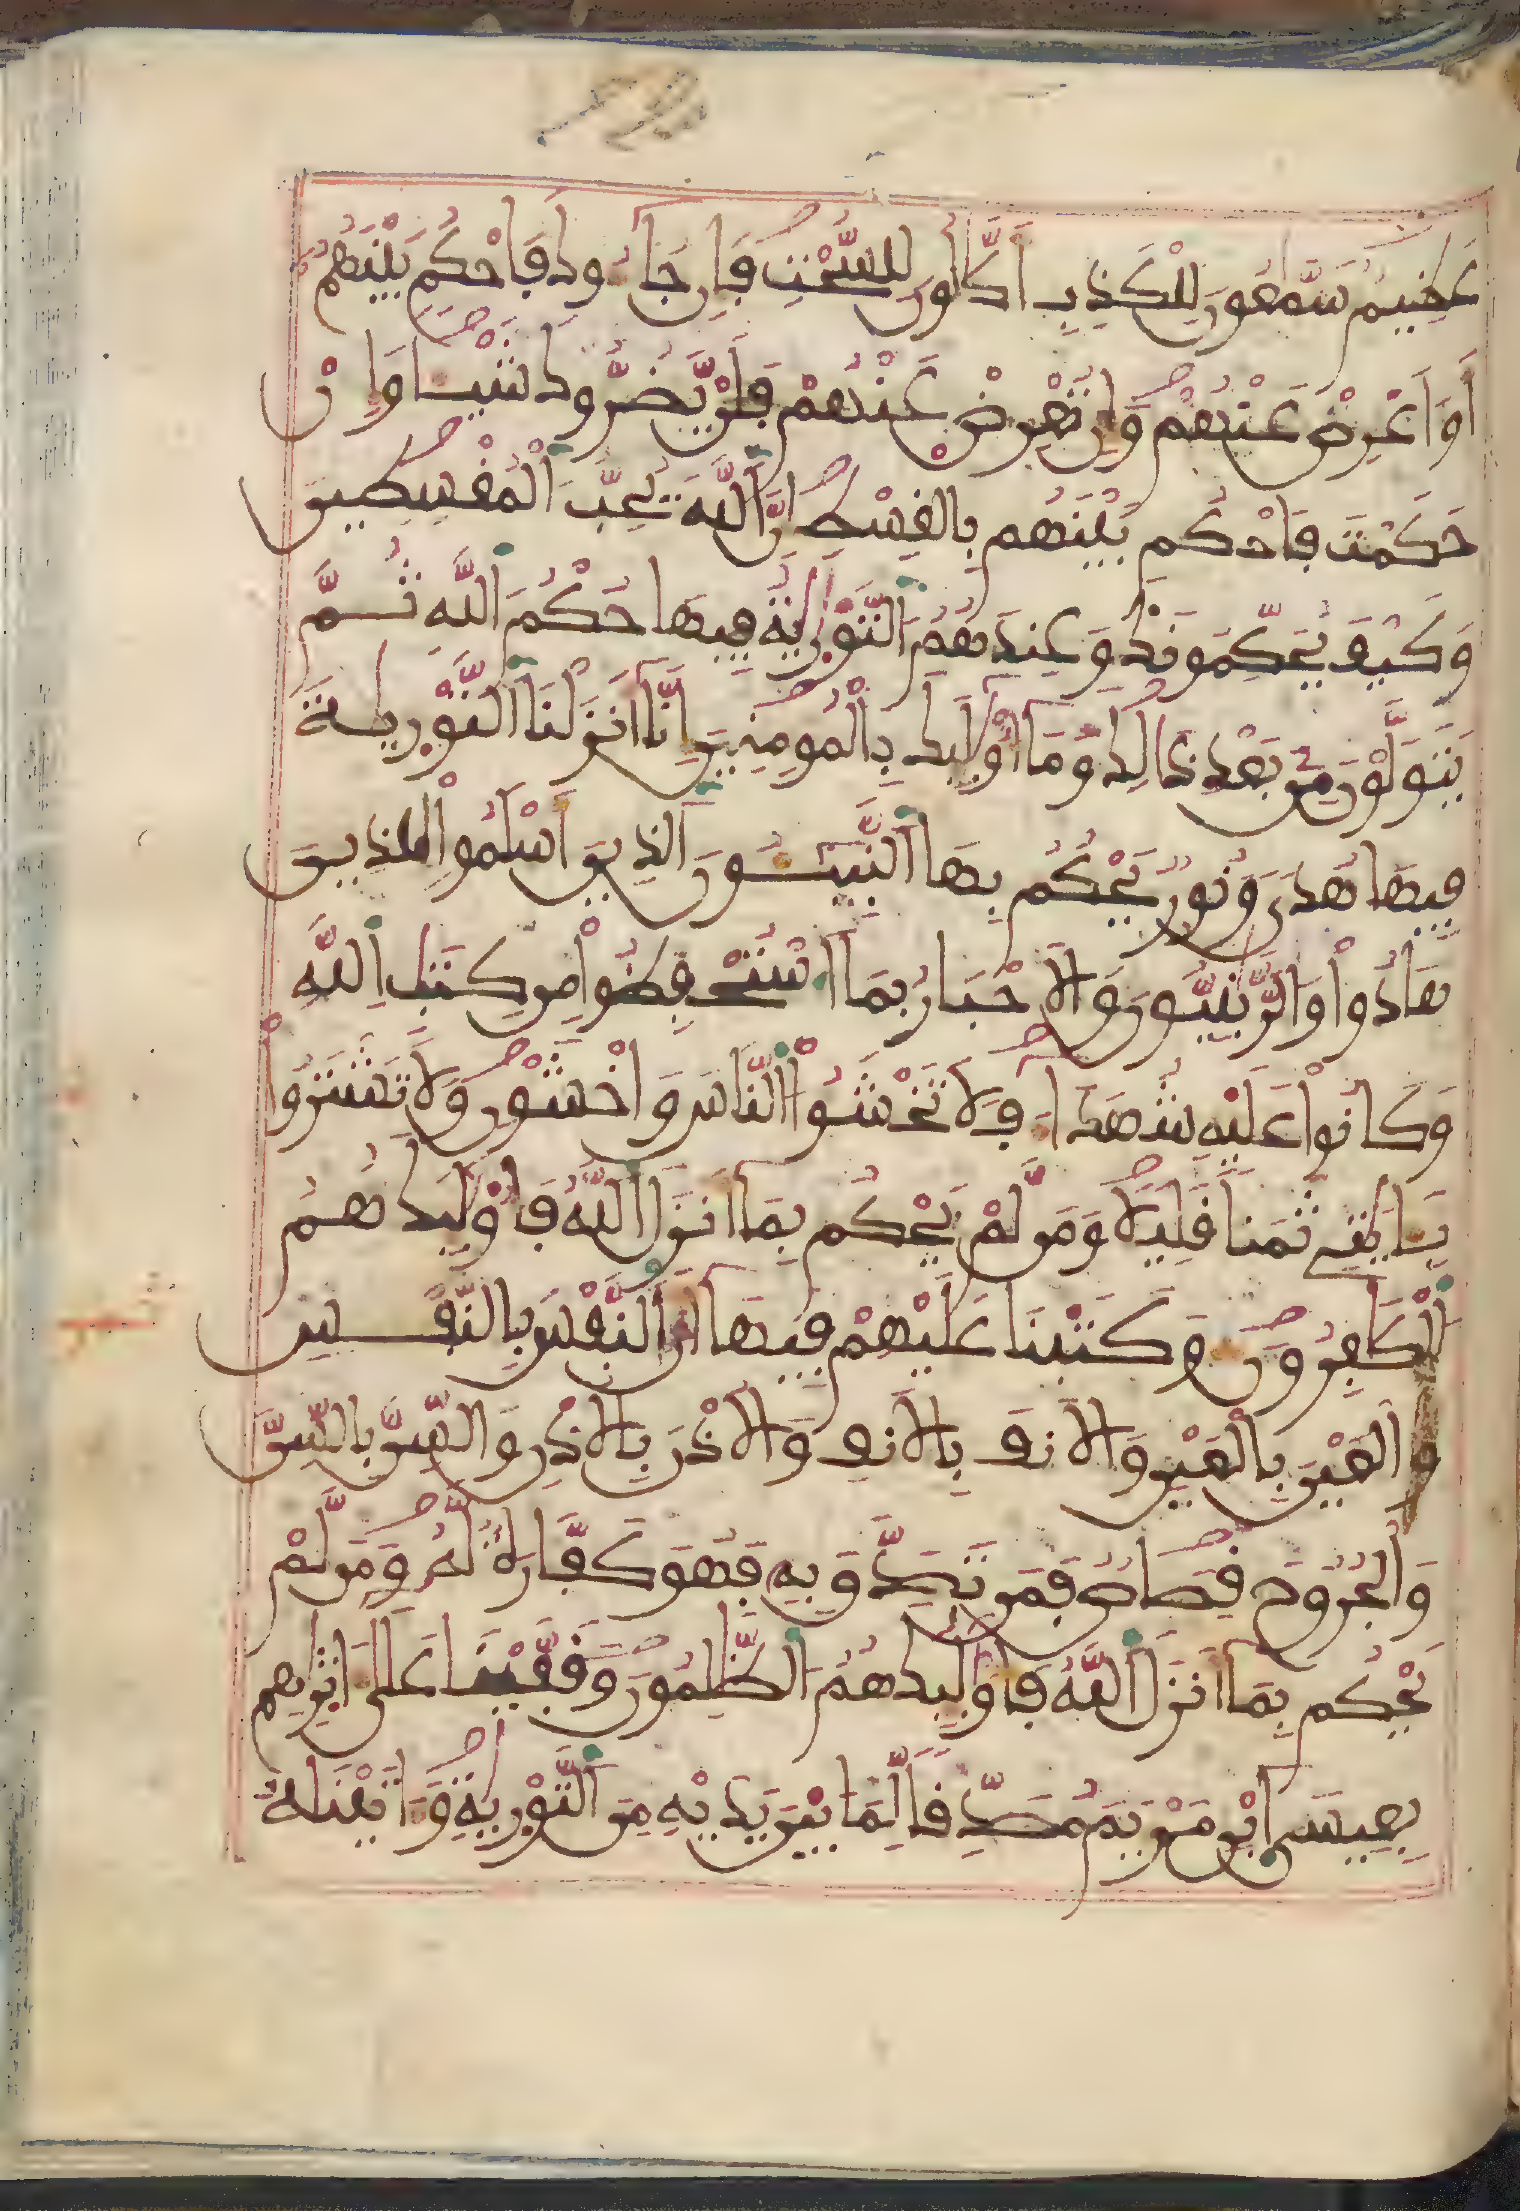 عَظِيمٌ سَمَّٰعُونَ لِلْكَذِبِ أَكَّٰلُونَ لِلسُّحْتِ فَإِن جَآءُوكَ فَاحْكُم بَيْنَهُمُ
أَوَ اَعْرِضْ عَنْهُمْ وَإِن تُعْرِضْ عَنْهُمْ فَلَنْ يَّضُرُّوكَ شَيْـًٔا وَإِنْ
حَكَمْتَ فَاحْكُم بَيْنَهُم بِالْقِسْطِ إِنَّ اَللَّهَ يُحِبُّ اُلْمُقْسِطِينَ
وَكَيْفَ يُحَكِّمُونَكَ وَعِندَهُمُ اُلتَّوْرَىٰةُ فِيهَا حُكْمُ اُللَّهِ ثُمَّ
يَتَوَلَّوْنَ مِنۢ بَعْدِ ذَٰلِكَ وَمَآ أُوْلَٰٓئِكَ بِالْمُومِنِينَ إِنَّآ أَنزَلْنَا اَلتَّوْرَىٰةَ
فِيهَا هُدًى وَنُورٌ يَحْكُمُ بِهَا اَلنَّبِيٓـُٔونَ اَلذِينَ أَسْلَمُواْ لِلذِينَ
هَادُواْ وَالرَّبَّٰنِيُّونَ وَالَاحْبَارُ بِمَا اَسْتُحْفِظُواْ مِن كِتَٰبِ اِللَّهِ
وَكَانُواْ عَلَيْهِ شُهَدَآءَ فَلَا تَخْشَوُاْ اُلنَّاسَ وَاخْشَوْنِ وَلَا تَشْتَرُواْ
بِـَٔايَٰتِے ثَمَنًا قَلِيلًا وَمَن لَّمْ يَحْكُم بِمَآ أَنزَلَ اَللَّهُ فَأُوْلَٰٓئِكَ هُمُ
اُلْكَٰفِرُونَ وَكَتَبْنَا عَلَيْهِمْ فِيهَآ أَنَّ اَلنَّفْسَ بِالنَّفْسِ
وَالْعَيْنَ بِالْعَيْنِ وَالَانفَ بِالَانفِ وَالُاذْنَ بِالُاذْنِ وَالسِّنَّ بِالسِّنِّ
وَالْجُرُوحَ قِصَاصٌ فَمَن تَصَدَّقَ بِهِ فَهُوَ كَفَّارَةٌ لَّهُ وَمَن لَّمْ
يَحْكُم بِمَآ أَنزَلَ اَللَّهُ فَأُوْلَٰٓئِكَ هُمُ اُلظَّٰلِمُونَ وَقَفَّيْنَا عَلَىٰٓ ءَاثَٰرِهِم
بِعِيسَى اَبْنِ مَرْيَمَ مُصَدِّقًا لِّمَا بَيْنَ يَدَيْهِ مِنَ اَلتَّوْرَىٰةِ وَءَاتَيْنَٰهُ